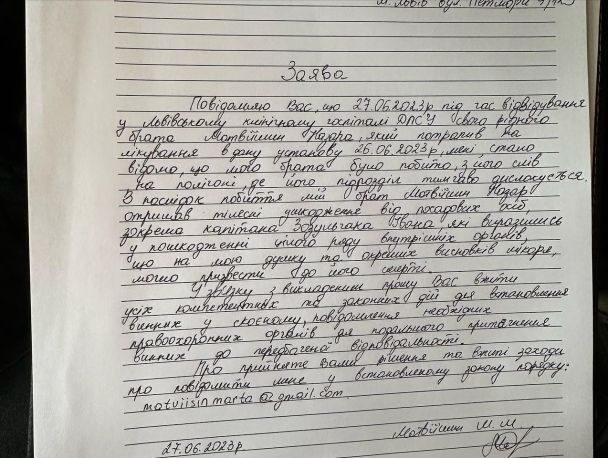 м. Львів вул. Петлюри
Заява
Повідомляю Вас, що 27.06.2023р під час відвідування
у Львівському клінічному госпіталі ДПСУ свого рідного
брата Матвіїшин Назара, який потрапив на
лікування в дану установу 26.06.2023р, мені стало
відомо, що мого брата було побито, з його слів
на полігоні, де його підрозділ тимчасово дислокується.
В наслідок побиття мій брат Матвіїшин Назар
отримав тілесні ушкодження від посадових осіб,
зокрема капітана Івана, які виразились
у пошкодженні цілого ряду внутрішніх органів,
що на мою думку та окремих висновків лікаря,
могло призвести до його смерті.
У зв'язку з викладеним прошу Вас вжити
усіх компетентних та законних дій для встановлення
винних у скоєному, повідомлення необхідних
правоохоронних органів для подальшого притягнення
винних до передбаченої відповідальності.
Про прийняте Вами рішення та вжиті заходи
про повідомити мене у встановленому законом порядку:
matviisin.marta@gmail.com
27.06.2023р.
Матвіїшин М.М